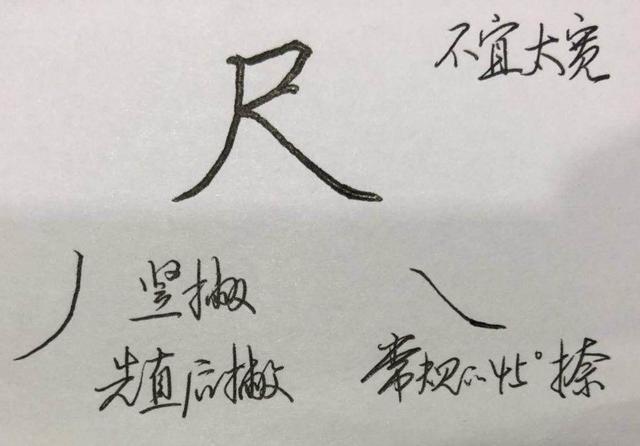 尺
不宜太宽
竖撇
先直后撇
常规的45°捺